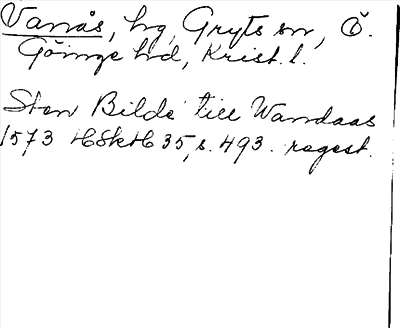 Vanås, hg, Gryts sn, Ö.
Göinge hd, Krist. l.
Sten Bilde till Wandaas
1573 HSkH 35, s. 493. regest.